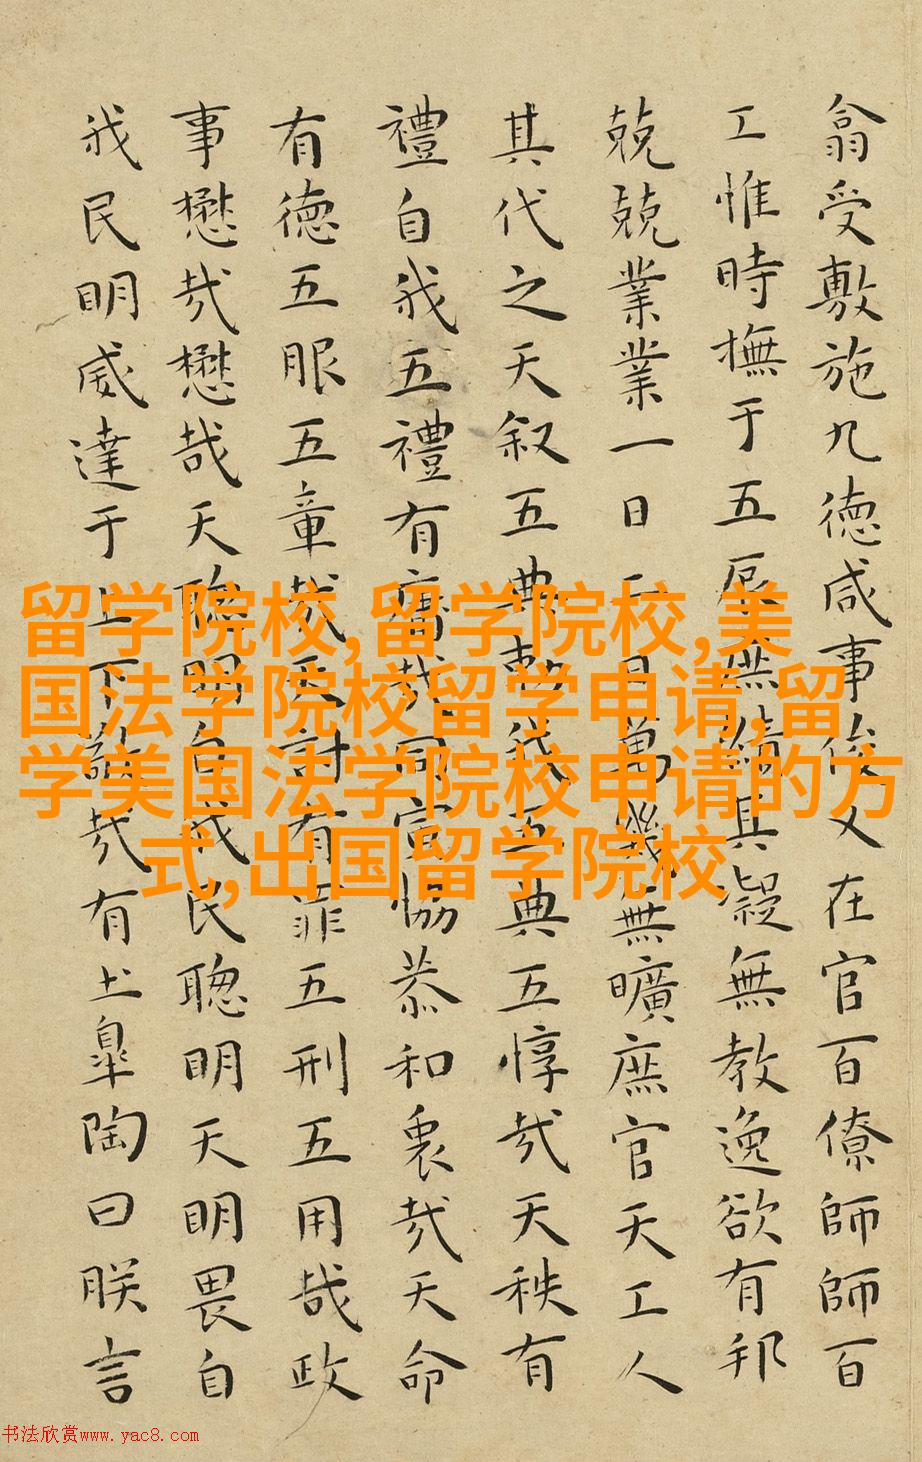 翕受敷施九德咸事俊乂在官百僚師師百
工惟時撫于五辰庶績其凝無教逸欲有邦
兢兢業業一日二日萬幾無曠庶官天工人
其代之天叙五典勑我五典五惇哉天秩有
禮自我五禮有庸哉同寅協恭和衷哉天命
有德五服五章哉天討有罪五刑五用哉政
事懋哉懋哉天聰明自我民聰明天明畏自
我民明威達于上下敬哉有土皐陶曰朕言
留学院校,留学院校,美
国法学院校留学申请,留
学美国法学院校申请的方
式,出国留学院校
书法欣赏www.yac8.com